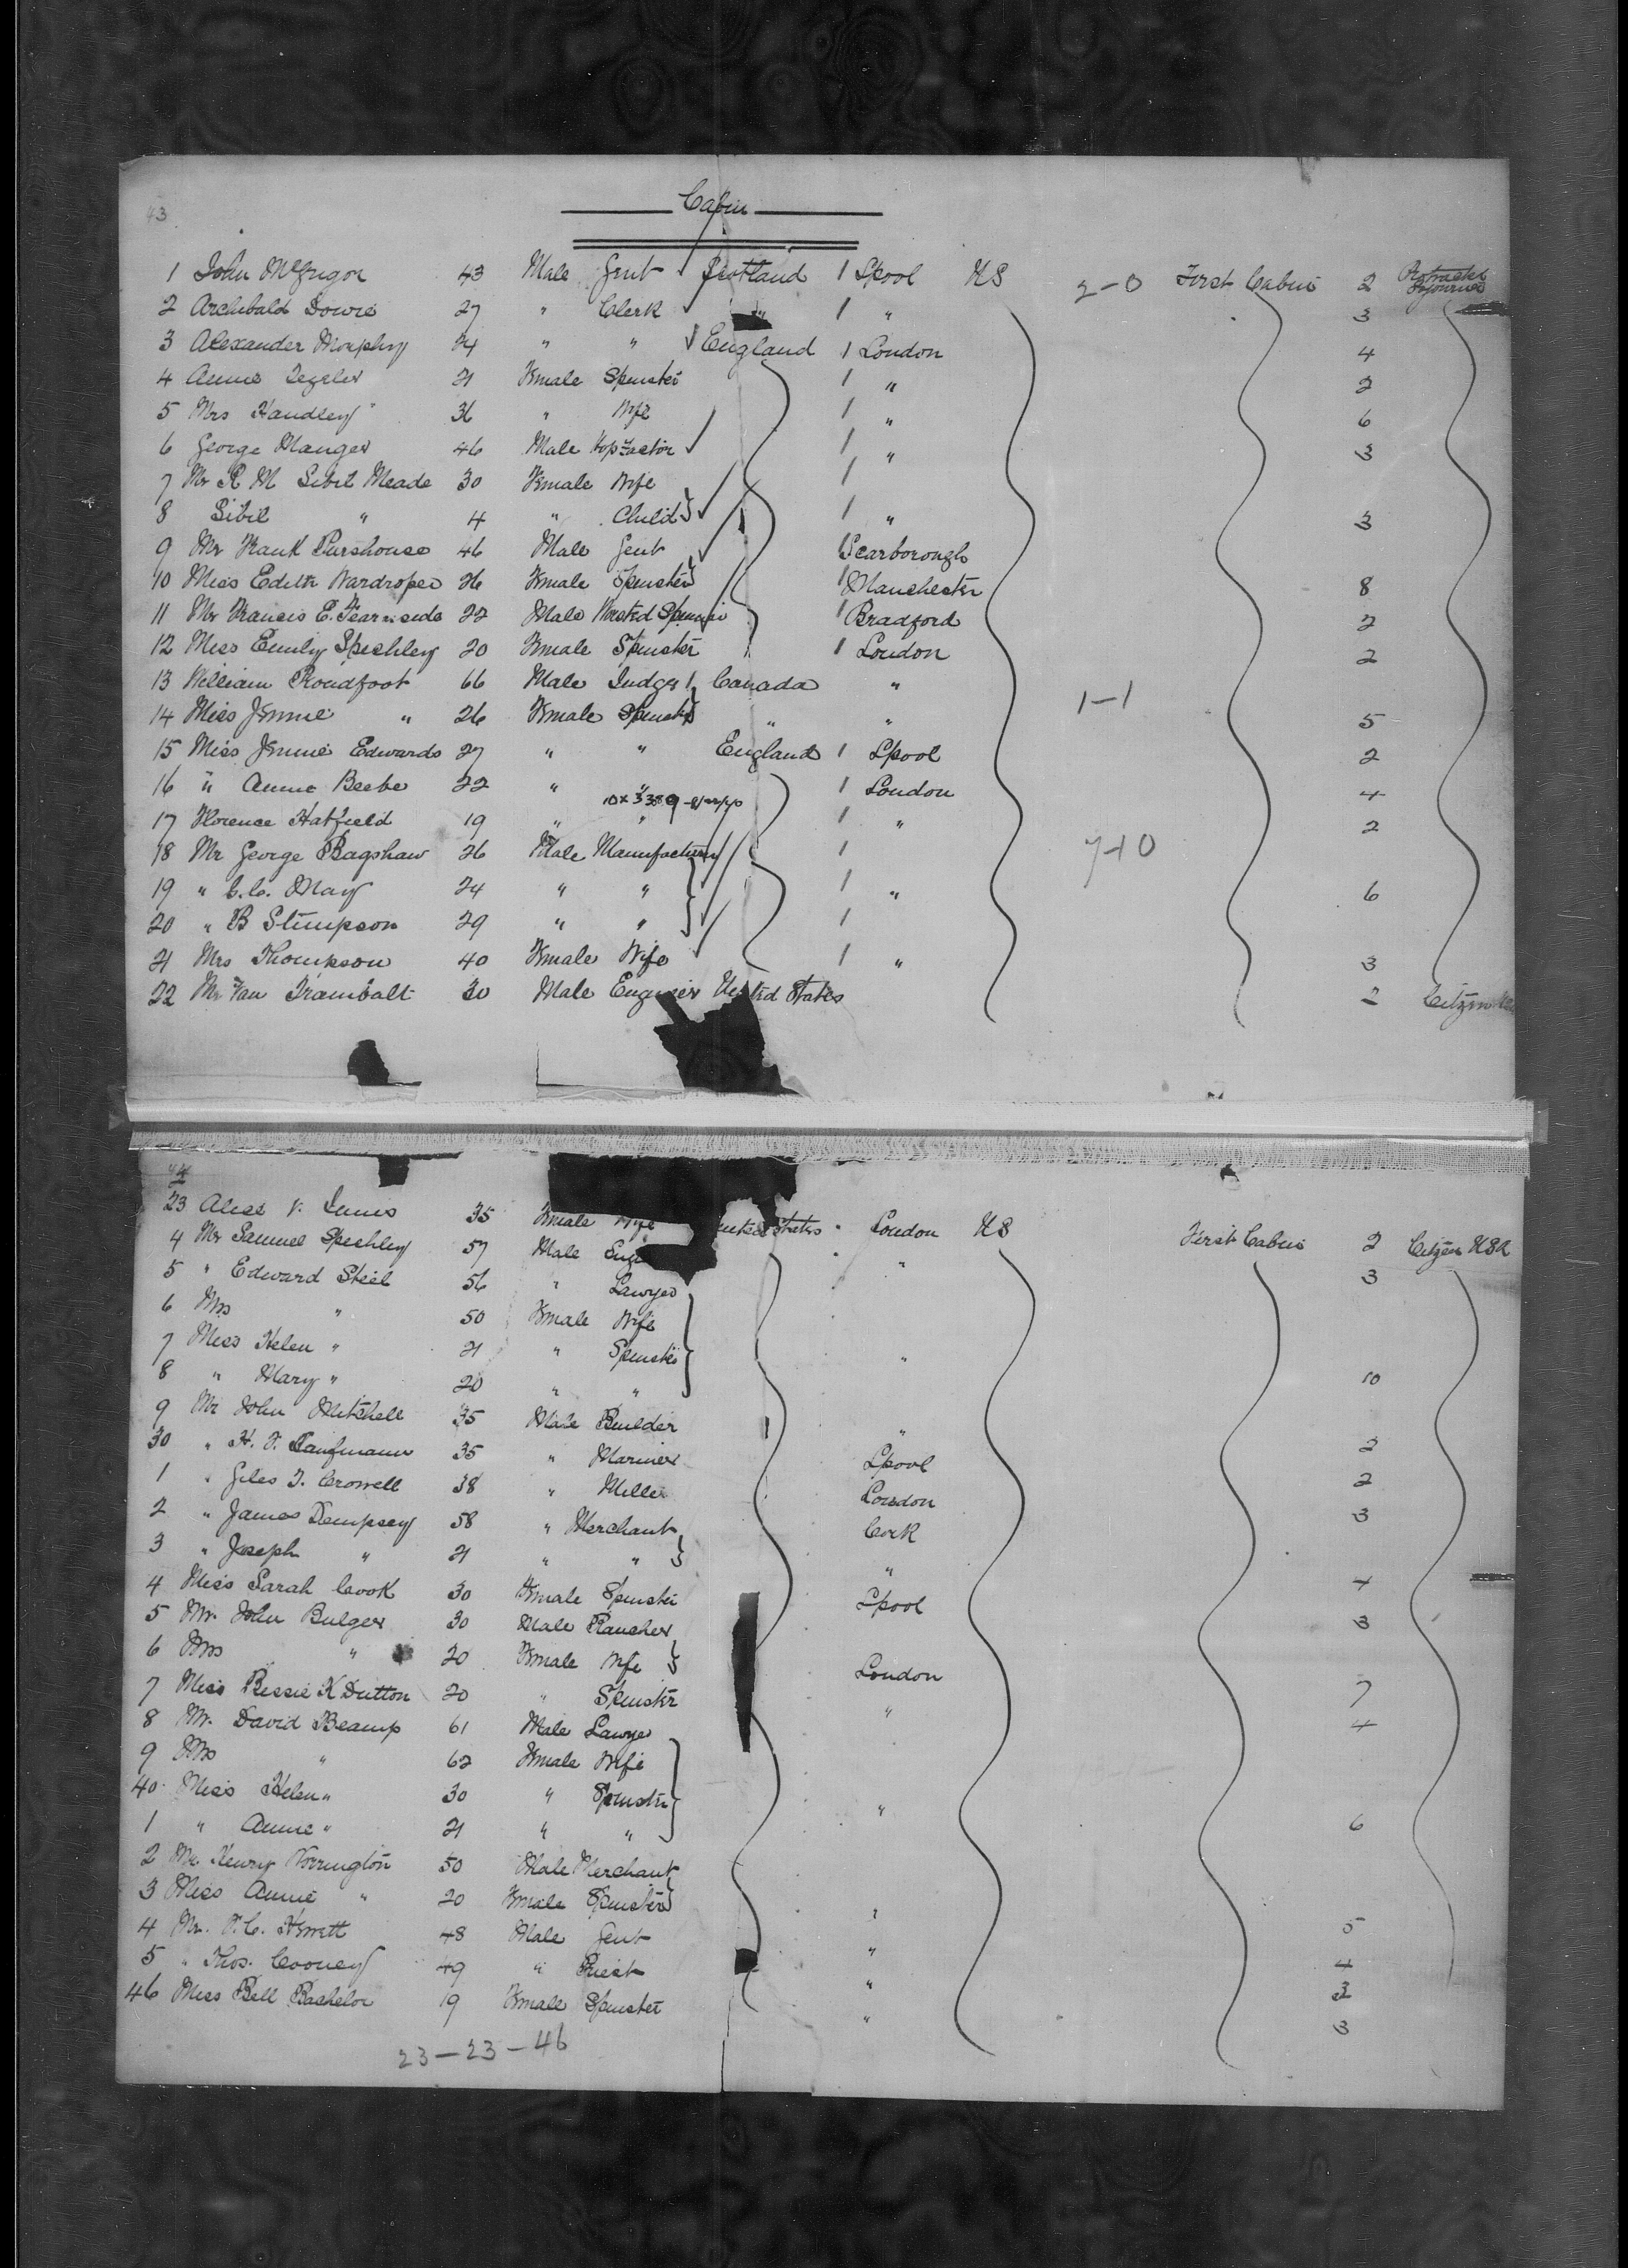 43
Cabin
1 John McGregor 43 Male Gent Scotland 1 Lpool US 2-0 First Cabin 2 Protracted Sojourner
2 Archibald Dowie 27 " Clerk " 1 " 3
3 Alexander Morphy 24 " " England 1 London 4
4 Annie 21 Female Spinster 1 " 2
5 Mrs Handley 36 " Wife 1 " 6
6 George Manger 46 Male Hop Factor 1 " 3
7 Mr R M Sibil Meade 30 Female Wife 1
8 Sibil " 4 " Child 1 " 3
9 Mr Frank Purshouse 46 Male Gent 1 Scarborough
10 Miss Edith Wardroper 26 Female Spinster 1 Manchester 8
11 Mr Francis E. Fearnside 22 Male Worsted Spinner 1 Bradford 2
12 Miss Emily Speshley 20 Female Spinster 1 London 2
13 William Proudfoot 66 Male Judge 1 Canada " 1-1
14 Miss Jennie " 26 Female Spinster " " 5
15 Miss Jennie Edwards 27 " " England 1 Lpool 2
16 " Annie Beebe 22 " " 1 London 4
17 Florence Hatfield 19 " " 1 " 2
18 Mr George Bagshaw 26 Male Manufacturer 1 7-10
19 " C.C. May 24 " " 1 " 6
20 " B Stimpson 29 " " 1
21 Mrs Thompson 40 Female Wife 1 " 3
22 Mr Van Trambalt 30 Male Engineer United States 2 Citizen
44
23 Alice V. Innis 35 Female Wife United States " London US First Cabin 2 Citizen USA
4 Mr Samuel Speshley 57 Male Eng " " 3
5 " Edward Steel 56 " Lawyer
6 Mrs " 50 Female Wife
7 Miss Helen " 21 " Spinster "
8 " Mary " 20 " " 10
9 Mr John Mitshell 35 Male Builder " 2
30 " H. F. Kaufmann 35 " Mariner Lpool 2
1 " Giles T. Crowell 38 " Miller London 3
2 " James Dempsey 58 " Merchant Cork
3 " Joseph " 21 " " " 4
4 Miss Sarah Cook 30 Female Spinster Lpool 3
5 Mr. John Bulger 30 Male Rancher
6 Mrs " 20 Female Wife London 7
7 Miss Bessie K Dutton 20 " Spinster " 4
8 Mr. David Beamp 61 Male Lawyer
9 Mrs " 62 Female Wife
40 Miss Helen " 30 " Spinster "
1 " Annie " 21 " " 6
2 Mr Henry Norrington 50 Male Merchant
3 Miss Annie " 20 Female Spinster " 5
4 Mr. F. C. Hewett 48 Male Gent " 4
5 " Thos. Cooney 49 " Priest " 3
46 Miss Bell Bachelor 19 Female Spinster " 3
23-23-46